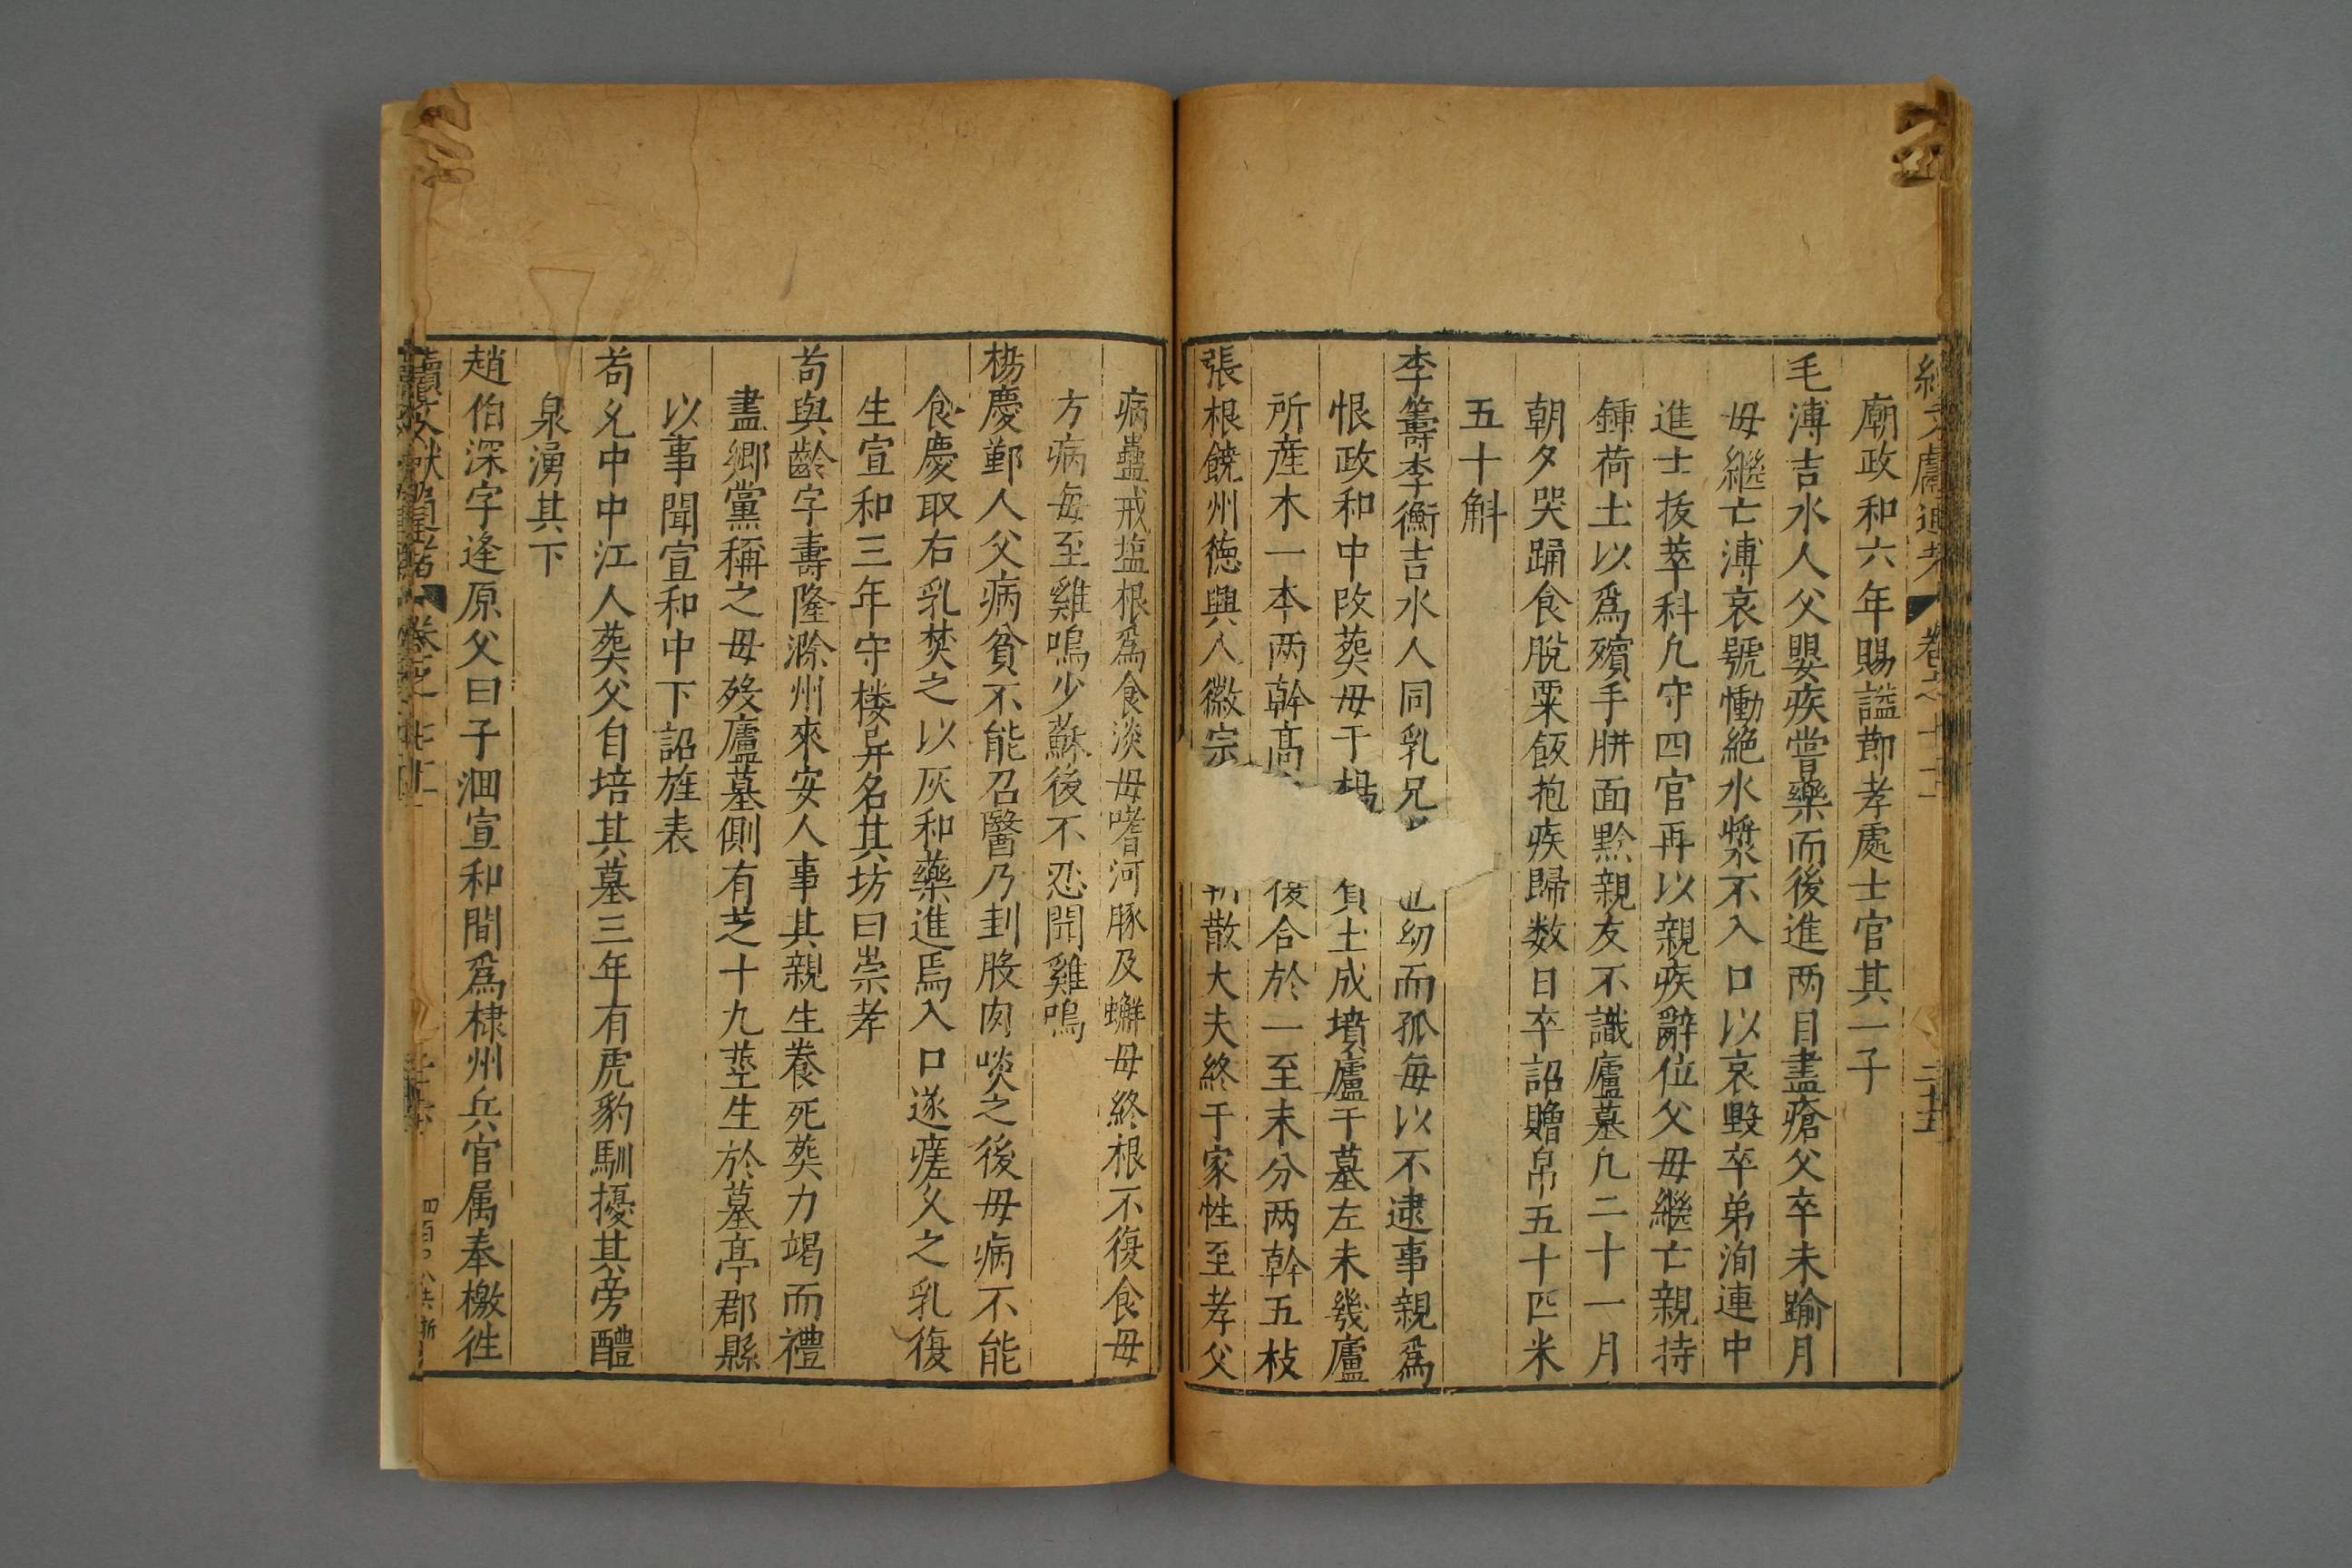 廟政和六年賜謚節孝處士官其一子
毛溥吉水人父嬰疾嘗藥而後進两目盡瘡父卒未踰月
毋繼亡溥哀號慟絶水漿不入口以哀毀卒弟洵連中
進士拔萃科凢守四官再以親疾辭位父毋繼亡親持
鍤荷土以爲殯手胼面黥親友不識廬墓凢二十一月
朝夕哭踊食脫粟飯抱疾歸数日卒詔贈帛五十匹米
五十斛
李籌李衡吉水人同乳兄
幼而孤毎以不逮事親爲
恨政和中改葬毋于楊
負土成墳廬于墓左未幾廬
所産木一本两幹髙
復合於一至末分两幹五枝
張根饒州徳興人徽宗
散大夫終于家性至孝父
病蠱戒塩根爲食淡毋嗜河豚及蠏毋終根不復食毋
方病毎至雞鳴少蘇後不忍聞雞鳴
楊慶鄞人父病貧不能召醫乃刲股肉啖之後毋病不能
食慶取右乳焚之以灰和藥進焉入口遂瘥久之乳復
生宣和三年守楼异名其坊曰崇孝
苟與齡字壽隆滁州來安人事其親生養死葬力竭而禮
盡郷黨稱之毋歿廬墓側有芝十九莖生於墓亭郡縣
以事聞宣和中下詔旌表
苟允中中江人葬父自培其墓三年有虎豹馴擾其旁醴
泉湧其下
趙伯深字逢原父曰子洄宣和間爲棣州兵官属奉檄徃
續文獻通考 卷之七十二